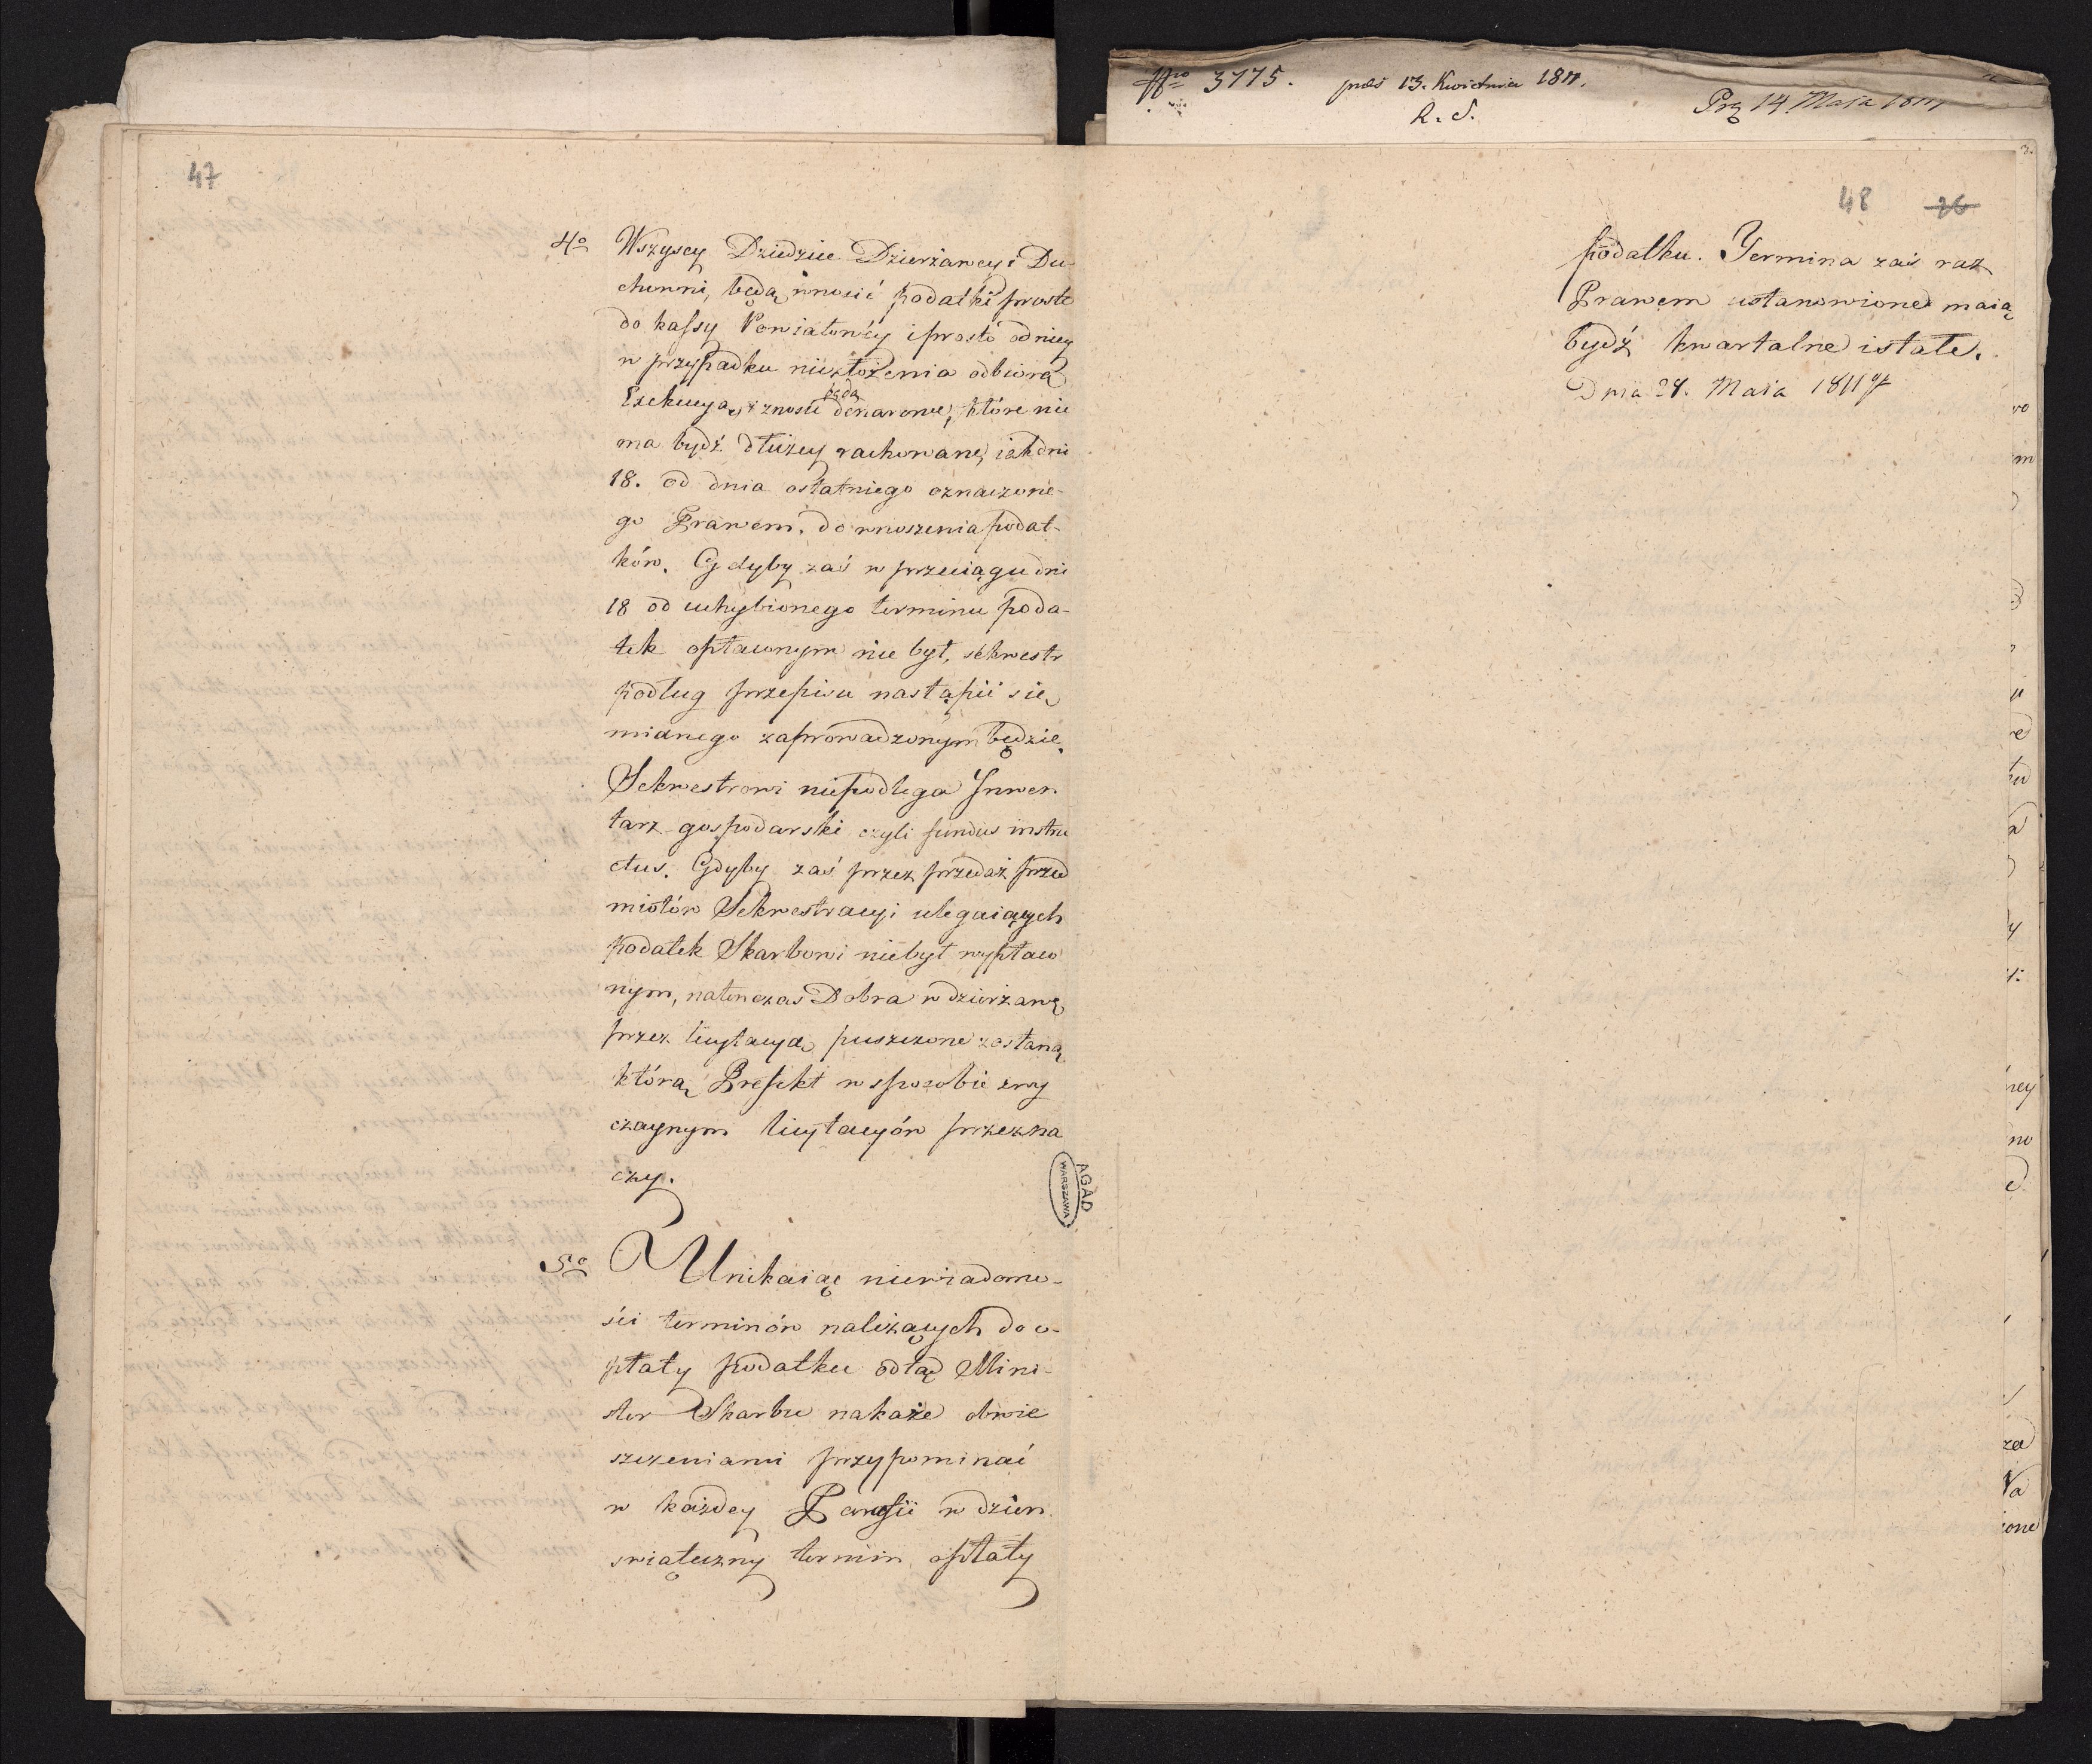 47
4o Wszyscy Dziedzice Dzierżawcy i Du-
chowni, będą wnosić podatki prosto
do kassy Powiatowéy i prosto od niey
w przypadku niezłożenia odbiorą
Exekucyą, i znosić będą
denarowe, które nie
ma bydź dłużey rachowane, iak dni
18. od dnia ostatniego oznaczone-
go Prawem, do wnoszenia podat-
ków. Gdyby zaś w przeciągu dni
18 od uchybionego terminu poda-
tek opłaconym nie był, sekwestr
podług przepisu nastąpić się
mianego zaprowadzonym będzie.
Sekwestrowi niepodlega Inwen
tarz gospodarski czyli fundus instru
ctus. Gdyby zaś przez przedaż przed
miotów Sekwestracyi ulegaiących
podatek Skarbowi niebył wypłaco
nym, natenczas Dobra w dzierżawę
przez licytacyą puszczone zostaną
którą Prefekt w sposobie zwy
czaynym licytacyów przezna
czy.
5o Unikaiąc niewiadomo-
ści terminów należących do o-
płaty podatku odtąd Mini-
ster Skarbu nakaże obwie
szczeniami przypominać
w każdey Parafii w dzień
świąteczny termin opłaty
AGAD
WARSZAWA
Nro 3775. prds 13. Kwietnia 1811.
R. S.
Prz 14 Maja 1811
48 26
podatku. Termina zaś raz
Prawem ustanowione maią
bydź kwartalne i stałe.
Dnia 28. Maja 1811 r